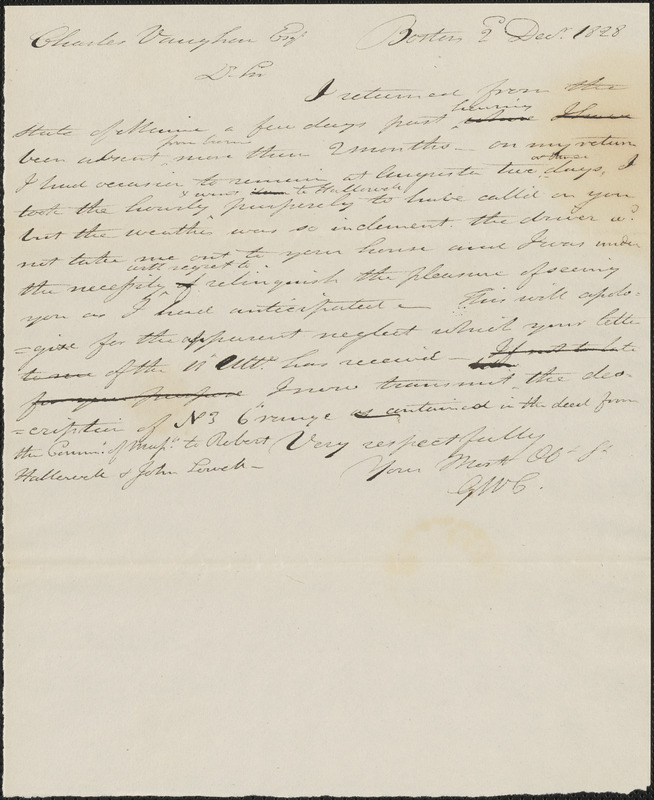 Charles Vaughan Esqr Boston 2d Decr. 1828
Dr Sir
I returned from the
State of Maine a few days past having
been absent from home more than 2 months – on my return
I had occasion to remain at Augusta two days, I
took the & went to Hallowell purposely to have call'd on you
but the weather was so inclement the driver wd.
not take me out to your house and I was under
the necessity with regret to relinquish the pleasure of seeing
you as I had anticipated – This will apolo-
=gize for the apparent neglect which your letter
to me of the 11 Ulto. has received – If not to late
for your purpose I now transmit the des-
=cription of No 3 6 range as contained in the deed from
the Commn. of Massts. to Robert
Hallowell & John Lowell –
Very respectfully
Your Most Obt St
GWC.